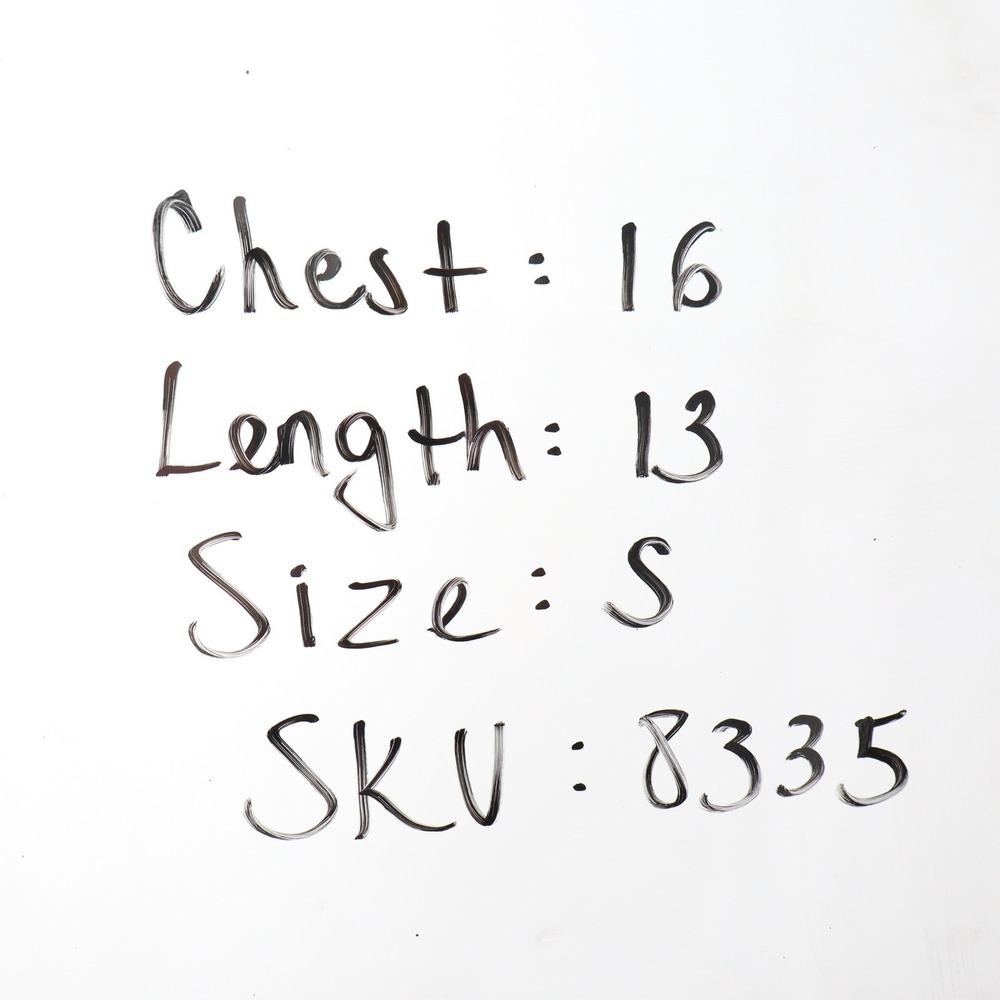 Chest: 16
Length: 13
Size: S
SKU: 8335